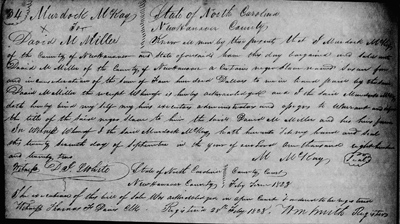 34 Murdock McKay State of North Carolina
to New Hanover County
David M Miller Know all men by these presents that I Murdock McKay
of the County of New Hanover and State aforesaid have this day bargained and sold unto
David M Miller of the County of New Hanover a certain negro slave named
and in consideration of the sum of Four hundred Dollars to me in hand paid by the said
David Miller the receipt whereof is hereby acknowledged and I the said Murdock McKay
doth hereby bind my self my heirs executors administrators and assigns to Warrant and defend
the title of the said negro slave to him the said David M Miller and his heirs forever
In Witness Whereof I the said Murdock McKay hath hereunto set my hand and seal
this twenty seventh day of September in the year of our Lord one thousand eight hundred
and twenty two M McKay (Seal)
Witness White State of North Carolina County Court
New Hanover County Feby Term 1823
The execution of this bill of Sale was acknowledged in open Court & ordered to be registered
Witness Thomas F Davis Clk Registered 28th Feby 1823 Wm Smith Register